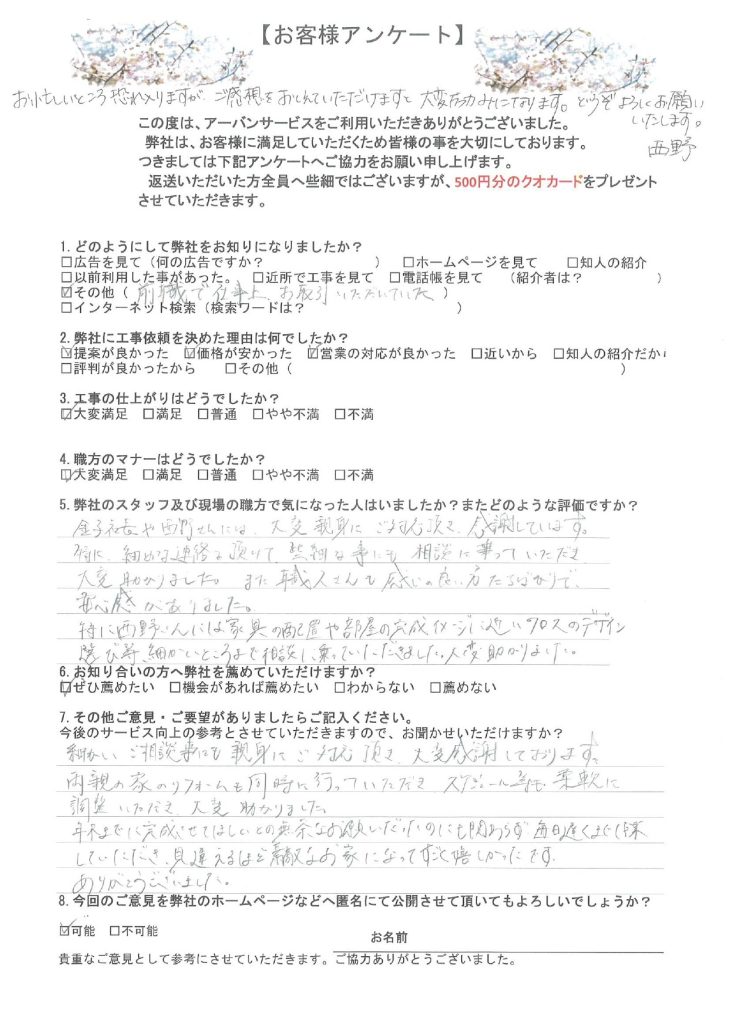 【お客様アンケート】
お忙しいところ恐れ入りますが、ご感想をおしえていただけますと大変励みになります。どうぞよろしくお願い
いたします。
西野
この度は、アーバンサービスをご利用いただきありがとうございました。
弊社は、お客様に満足していただくため皆様の事を大切にしております。
つきましては下記アンケートへご協力をお願い申し上げます。
返送いただいた方全員へ些細ではございますが、500円分のクオカードをプレゼント
させていただきます。
1.どのようにして弊社をお知りになりましたか？
□広告を見て（何の広告ですか？　　　　　　　　）　□ホームページを見て　□知人の紹介
□以前利用した事があった。　□近所で工事を見て　□電話帳を見て　（紹介者は？　　　　　）
☑その他（前職で仕事上、お取引いただいていた）
□インターネット検索（検索ワードは？　　　　　　　　　　　）
2.弊社に工事依頼を決めた理由は何でしたか？
☑提案が良かった　☑価格が安かった　☑営業の対応が良かった　□近いから　□知人の紹介だから
□評判が良かったから　□その他（　　　　　　　　　　　　　　　　　　　　）
3.工事の仕上がりはどうでしたか？
☑大変満足　□満足　□普通　□やや不満　□不満
4.職方のマナーはどうでしたか？
☑大変満足　□満足　□普通　□やや不満　□不満
5.弊社のスタッフ及び現場の職方で気になった人はいましたか？またどのような評価ですか？
金子社長や西野さんには、大変親身にご対応頂き、感謝しています。
特に、細かな連絡を頂けて、些細な事にも相談に乗っていただき
大変助かりました。また職人さんも感じの良い方たちばかりで、
安心感がありました。
特に西野さんには家具の配置や部屋の完成イメージに近いクロスのデザイン
選び等、細かいところまで相談に乗っていただきました。大変助かりました。
6.お知り合いの方へ弊社を薦めていただけますか？
☑ぜひ薦めたい　□機会があれば薦めたい　□わからない　□薦めない
7.その他ご意見・ご要望がありましたらご記入ください。
今後のサービス向上の参考とさせていただきますので、お聞かせいただけますか？
細かいご相談事にも親身にご対応頂き、大変感謝しております。
両親の家のリフォームも同時に行っていただき、スケジュール等も柔軟に
調整いただき、大変助かりました。
年末までに完成させてほしいとの無茶なお願いだったのにも関わらず毎日遅くまで作業
していただき、見違えるほど素敵なお家になってすごく嬉しかったです。
ありがとうございました。
8.今回のご意見を弊社のホームページなどへ匿名にて公開させて頂いてもよろしいでしょうか？
☑可能　□不可能
お名前
貴重なご意見として参考にさせていただきます。ご協力ありがとうございました。